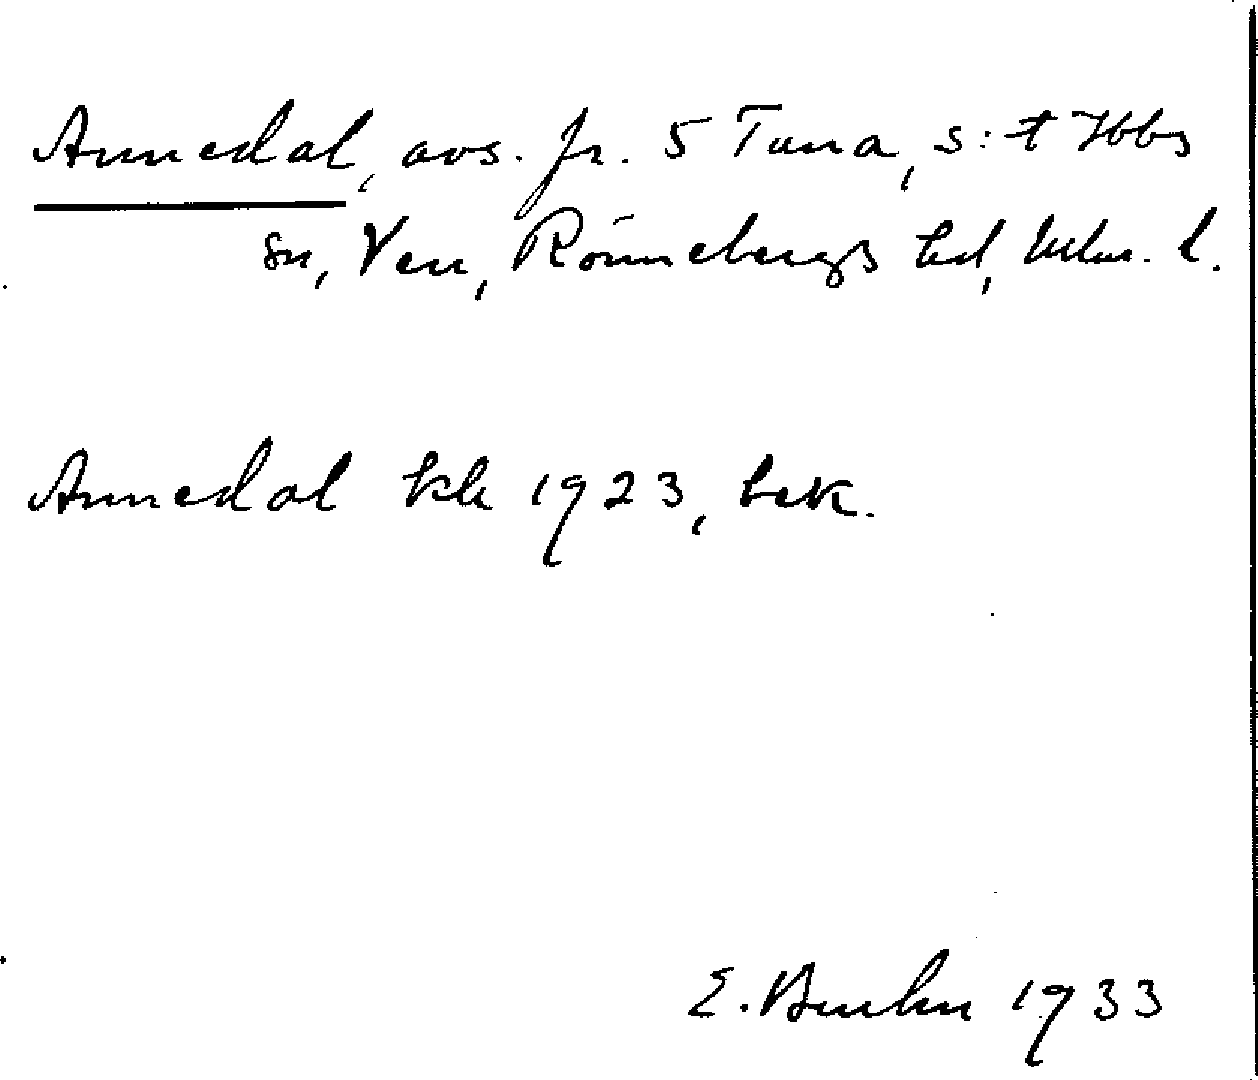 Annedal, avs. fr. 5 Tuna, S:t Ibbs
sn, Ven, Rönnebergs hd, Mlm. l.
Annedal kk 1923, bek.
E. Bruhn 1933